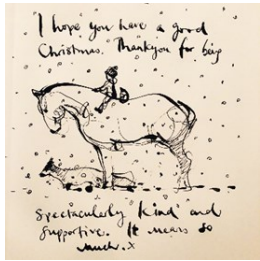 I hope you have a good
Christmas. Thankyou for being
spectacularly kind and
supportive. It means so
much.x